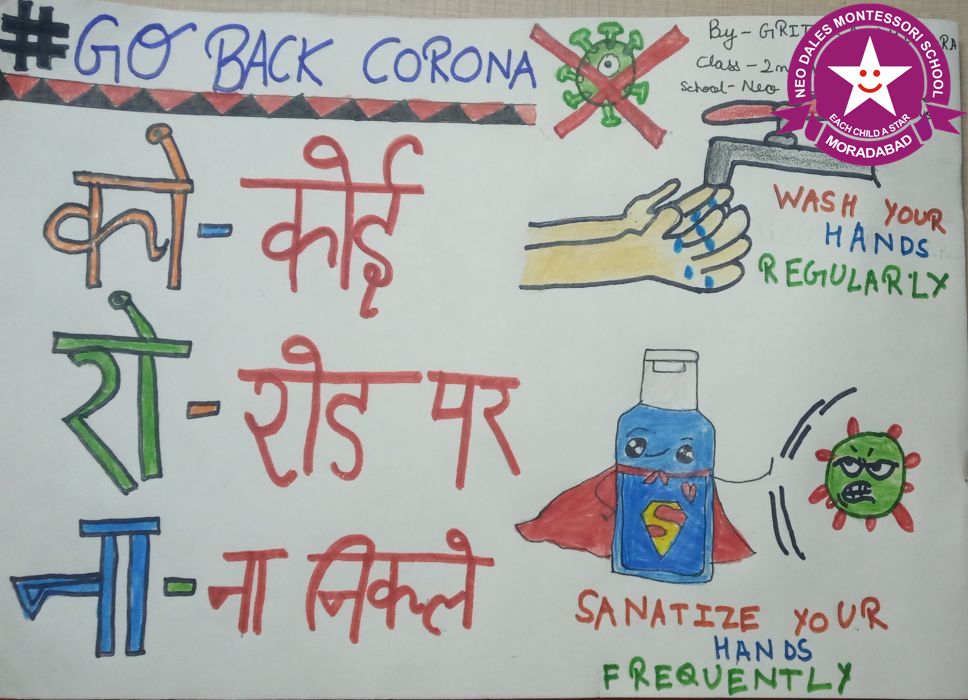 #GO BACK CORONA
By - 
Class - 
School - Neo
NEO DALES MONTESSORI SCHOOL
EACH CHILD A STAR
MORADABAD
को - कोई
रो - रोड पर
ना - ना निकले
WASH YOUR
HANDS
REGULARLY
S
SANATIZE YOUR
HANDS
FREQUENTLY